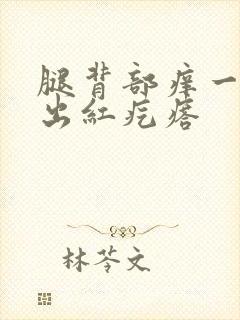 腿背部痒一
出红疙瘩
林苓文